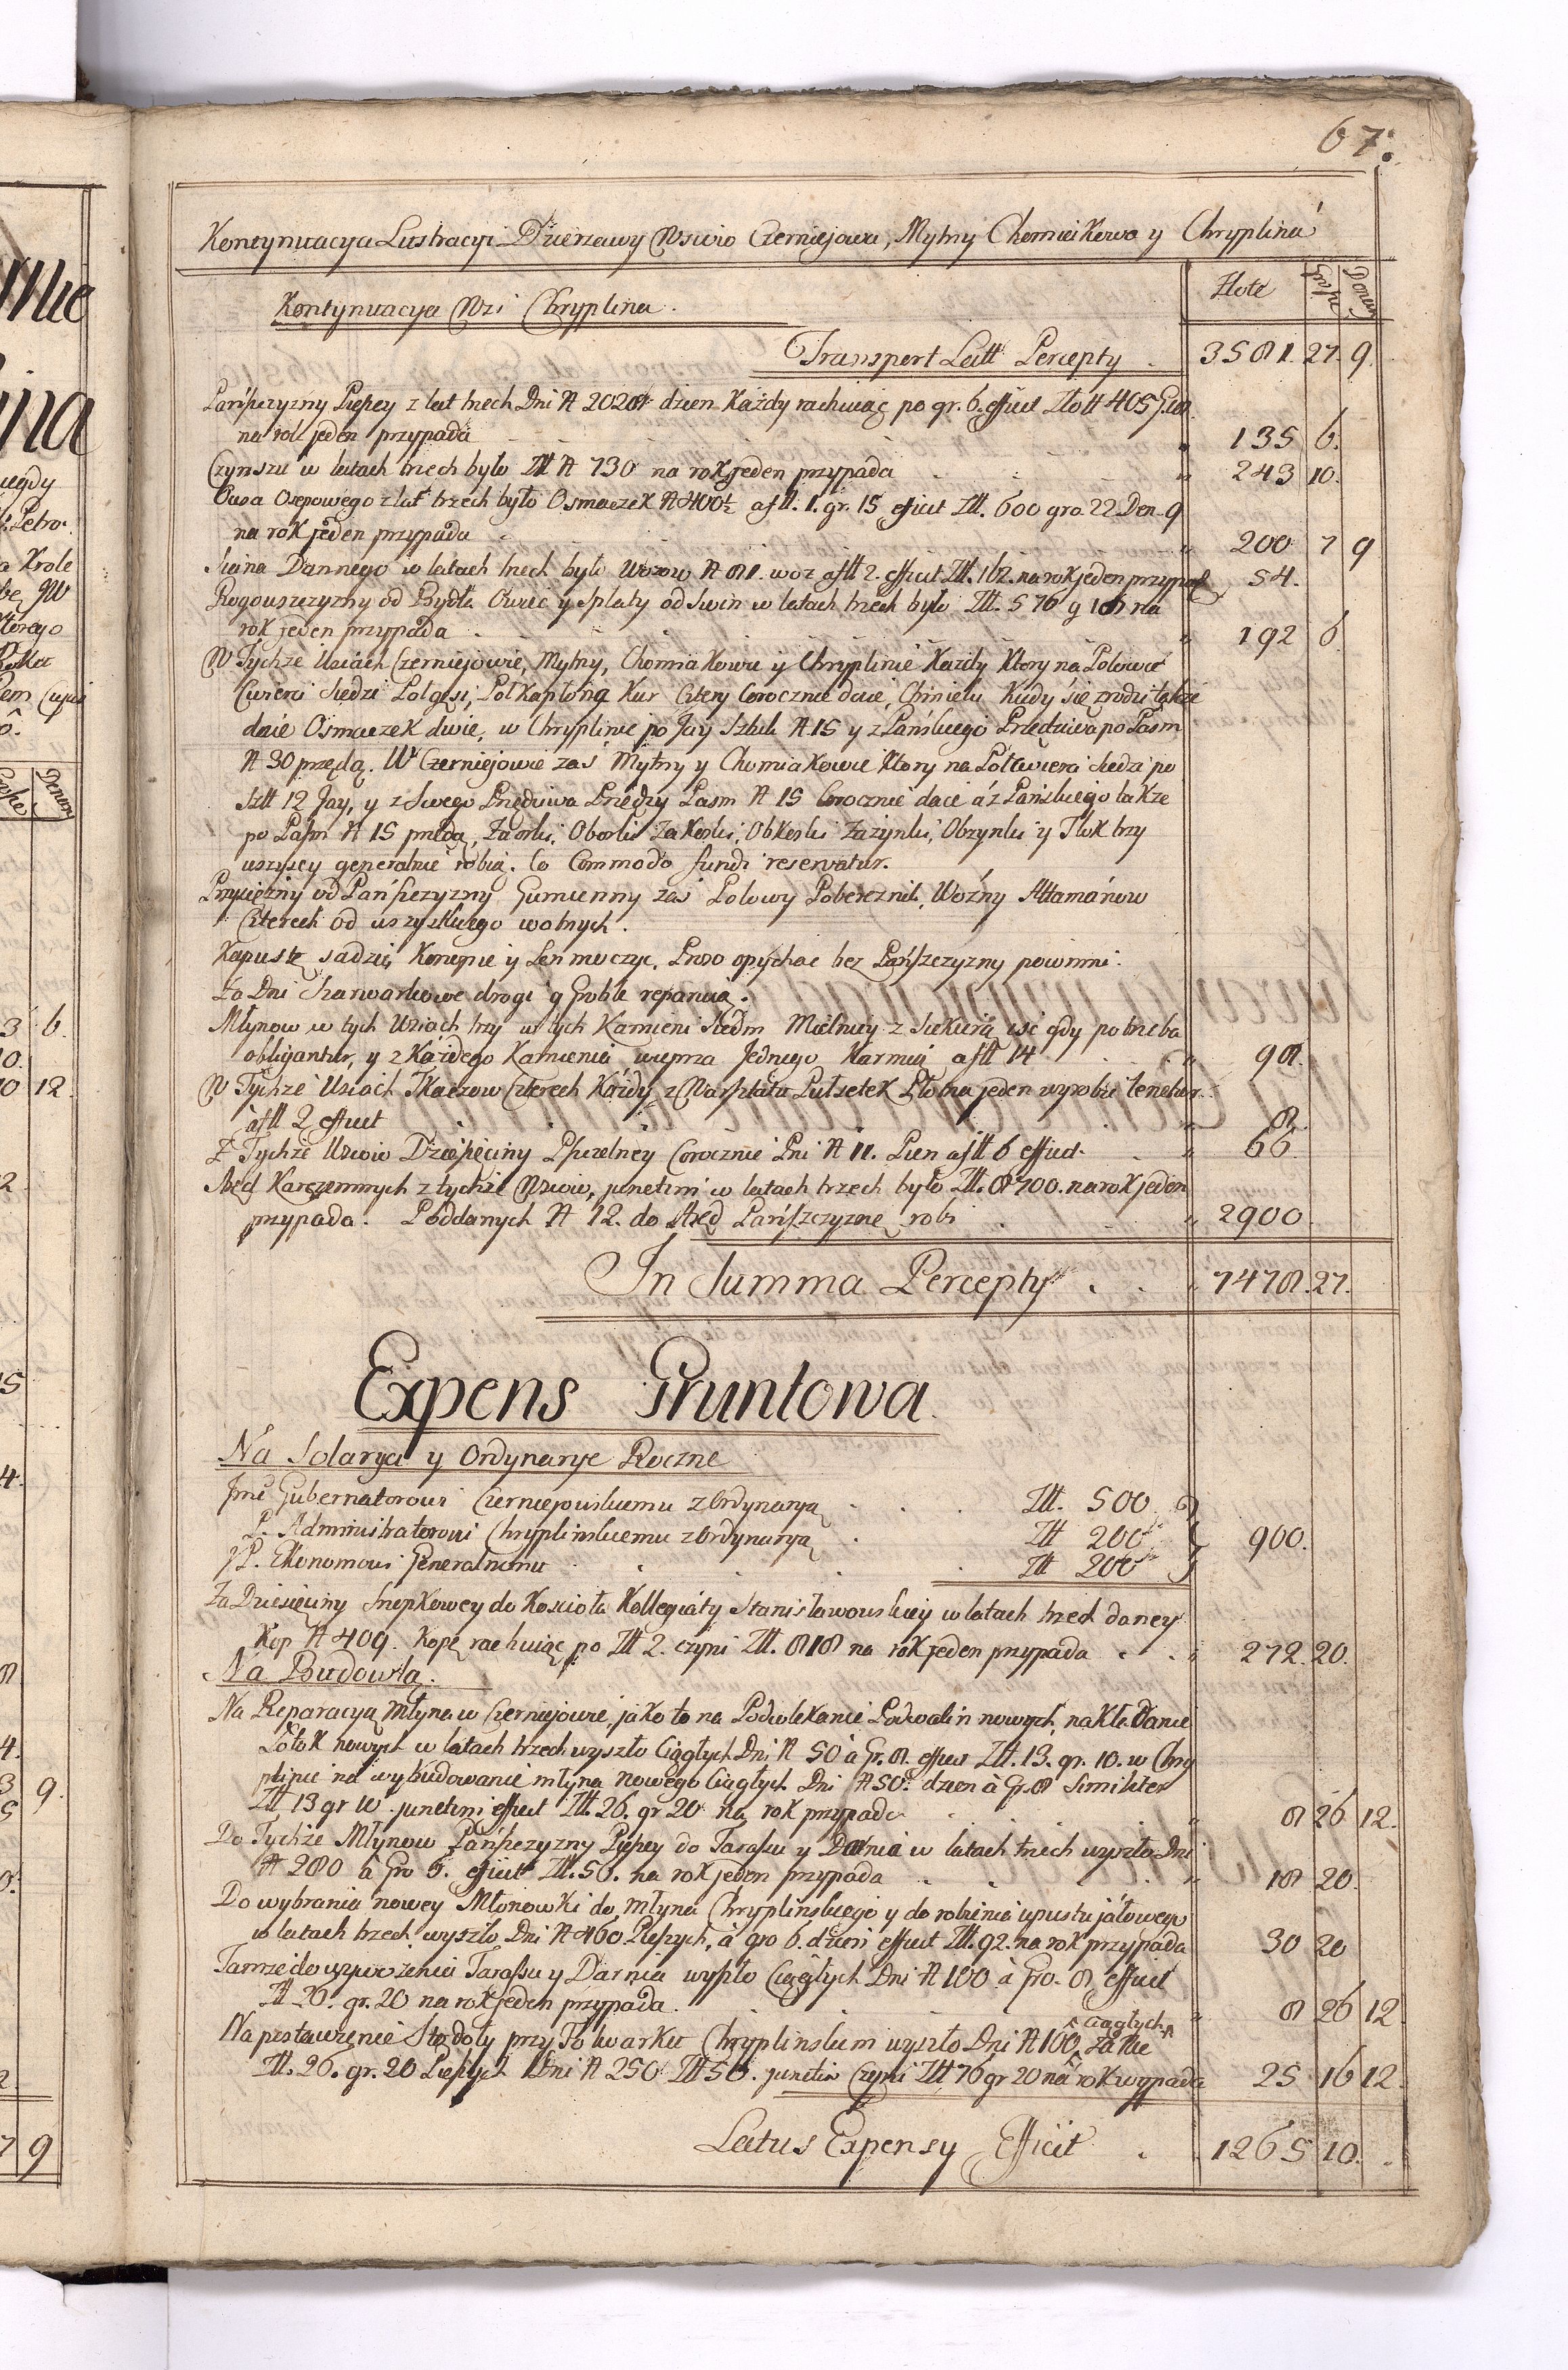 67:
Kontynuacya Lustracyi Dzierzawy Wsiow Czerniejowa, Mytny Chomiakowa y Chryplina
Kontynuacya Wsi Chryplina. Złote Grosze Denary
Transport Latt Percepty 3581. 27. 9.
Pańszczyzny Pieszey z lat trzech Dni N 2028 dzien Każdy rachuiąc po gr. 6. efficit Zło tt 405 g. 18.
na rok jeden przypada 135 6.
Czynszu w latach trzech było Ztt N 730 na rok jeden przypada 243 10.
Owsa Osepowego z lat trzech było Osmaczek N 400½ a ftt. 1. gr. 15 efficit Ztt. 600 gro. 22 Den. 9
na rok jeden przypada 200 7 9
Siana Dannego w latach trzech było Wozow N 81. woz a ftt 2. efficit Ztt. 162. na rok jeden przypad 54.
Rogowszczyzny od Bydła Owiec y Spłaty od Swin w latach trzech było Ztt. 576 g 18 na
rok jeden przypada 192 6
W Tychże Wsiach Czerniejowie, Mytny, Chomiakowie y Chryplinie Każdy Ktory na Połowie
Cwierci siedzi Połgęsi, Połkapłona Kur Cztery Corocznie daie, Chmielu Kiedy się zrodzi także
daie Osmaczek dwie, w Chryplinie po Jay Sztuk N. 15 y z Pańskiego Przędziwa po Pasm
N 30 przędą. W Czerniejowie zaś Mytny y Chomiakowie Ktory na Połcwierci siedzi po
sztt 12 Jay, y z Swego Przędziwa Przędzy Pasm N 15 Corocznie daie á z Pańskiego także
po Pasm N 15 przędą, Zaorki, Oborki Zakoski, Obkoski Zażynki, Obzynki y Tłok trzy
wszyscy generalnie robią. Co Commodo fundi reservatur.
Przysiężny od Pańszczyzny Gumienny zaś Polowy Pobereznik, Woźny Attamánow
Czterech od wszystkiego wolnych.
Kapustę sadzić Konopie y Len moczyc, Proso opychac bez Pańszczyzny powinni.
Za Dni Szarwarkowe drogi y Groble reparuią.
Młynow w tych Wsiach trzy w tych Kamieni siedm Mielnicy z Siekierą iść gdy potrzeba
obligantur, y z Każdego Kamienia wieprza Jednego Karmią a ftt 14 98.
W Tychże Wsiach Tkaczow Czterech Każdy z Warsztatu Pułsetek Płotna jeden wyrobic tenetur
a ftt 2 efficit 8.
Z Tychże Wsiow Dziesięciny Pszczelney Corocznie Pni N 11. Pien a ftt 6 efficit 66.
Aręd Karczemnych z tychże Wsiow, junctim w latach trzech było Ztt. 8700. na rok jeden
przypada. Poddanych N 12. do Aręd Pańszczyznę robi 2900.
In Summa Percepty 7478. 27.
Expens Gruntowa.
Na Solarya y Ordynarye Roczne
Jmć Gubernatorowi Czerniejowskiemu z Ordynaryą Ztt. 500
P. Administratorowi Chryplinskiemu z Ordynaryą Ztt 200 900.
JP. Ekonomowi Generalnemu Ztt 200
Za Dziesięciny Snopkowey do Kościoła Kollegiaty Stanisławowskiey w latach trzech daney
Kop N 409. Kopę rachuiąc po Ztt 2. czyni Ztt. 818 na rok jeden przypada 272. 20.
Na Budowlą.
Na Reparacyą Młyna w Czerniejowie, jako to na Podwlekanie Podwalin nowych, nakładanie
Łotok nowych w latach trzech wyszło Ciągłych Dni N 50 à Gr. 8. efficit Ztt. 13. gr. 10. w Chry
plinie na wybudowanie młyna nowego Ciągłych Dni N 50. dzien à Gr. 8 Similiter
Ztt 13 gr 10 junctim efficit Ztt. 26. gr 20 na rok przypada 8 26 12.
Do Tychże Młynow Pańszczyzny Pieszey do Tarasu y Darnia w latach trzech wyszło Dni
N 280 à Gro 6. efficit Ztt. 56. na rok jeden przypada 18 20.
Do wybrania nowey Młonowki do młyna Chryplinskiego y do robienia upustu jałowego
w latach trzech wyszło Dni N 460 Pieszych, à gro 6. dzień efficit Ztt. 92. na rok przypada 30 20
Tamże do wywozenia Tarasu y Darnia wyszło Ciągłych Dni N 100 à Gro. 8 efficit
Ztt 26. gr. 20 na rok jeden przypada. 8 26 12.
Ciągłych
Na postawienie Stodoły przy Folwarku Chryplinskim wyszło Dni N 100 za nie
Ztt. 26. gr. 20 Pieszych Dni N 250 Ztt 50. junctim Czyni Ztt 76 gr 20 na rok wypada 25 16 12.
Latus Expensy Efficit 1265 10.